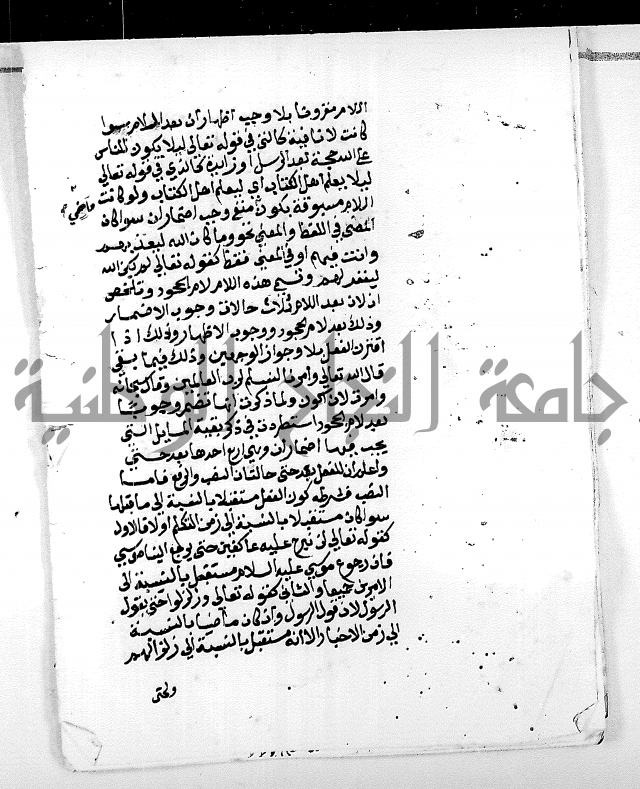 اللام مقرونا بلا وجب اظهار أن بعد اللام سوا
كانت لا نافية كالتي في قوله تعالي ليلا يكون للناس
علي الله حجة بعد الرسل او زايدة كالذي في قوله تعالي
ليلا يعلم اهل الكتاب اي ليعلم اهل الكتاب ولو كانت
ماضي
اللام مسبوقة بكون منفي وجب اضمار ان سوا كان
المضي في اللفظ والمعني نحو وما كان الله ليعذبهم
وانت فيهم او في المعني فقط كقوله تعالي لم يكن الله
ليغفر لهم وتسمي هذه اللام لام الجحود وتلخص
ان لان بعد اللام ثلاث حالات وجوب الاضمار
وذلك بعد لام الجحود ووجوب الاظهار وذلك اذا
اقترن الفعل بلا وجواز الوجهين وذلك فيما بقي
قال الله تعالي وامرنا لنسلم لرب العالمين وقال سبحانه
وامرت لان اكون ولما ذكرت انها تضمر وجوبا
بعد لام الجحود استطردت في ذكر بقية المسايل التي
يجب فيها اضمار ان وهي اربع احدها بعد حتي
واعلم ان للفعل بعد حتي حالتان النصب والرفع فاما
النصب فشرطه كون الفعل مستقبلا بالنسبة الي ما قبلها
سوا كان مستقبلا بالنسبة الي زمن التكلم او لا فالاول
كقوله تعالي لن نبرح عليه عاكفين حتي يرجع الينا موسي
فان رجوع موسي عليه السلام مستقبل بالنسبة الي
الامرين جميعا والثاني كقوله تعالي وزلزلوا حتي يقول
الرسول لان قول الرسول وان كان ماضيا بالنسبة
الي زمن الاخبار الا انه مستقبل بالنسبة الي زلزالهم
ولحتي
جامعة النجاح الوطنية